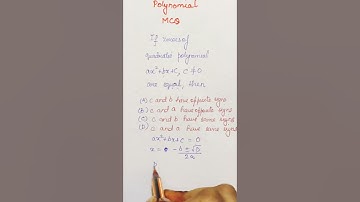 Polynomial
MCQ
If zeroes of
quadratic polynomial
ax²+bx+c, c≠0
are equal, then
(A) c and b have opposite signs
(B) c and a have opposite signs
(C) c and b have same signs
(D) c and a have same signs
ax²+bx+c = 0
x = -b ± √D
2a